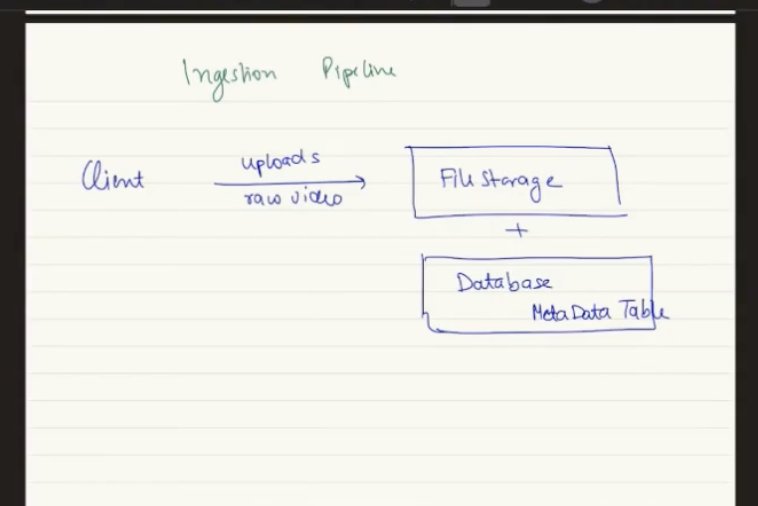 Ingestion Pipeline
Client
uploads
raw video
File Storage
+
Database
MetaData Table